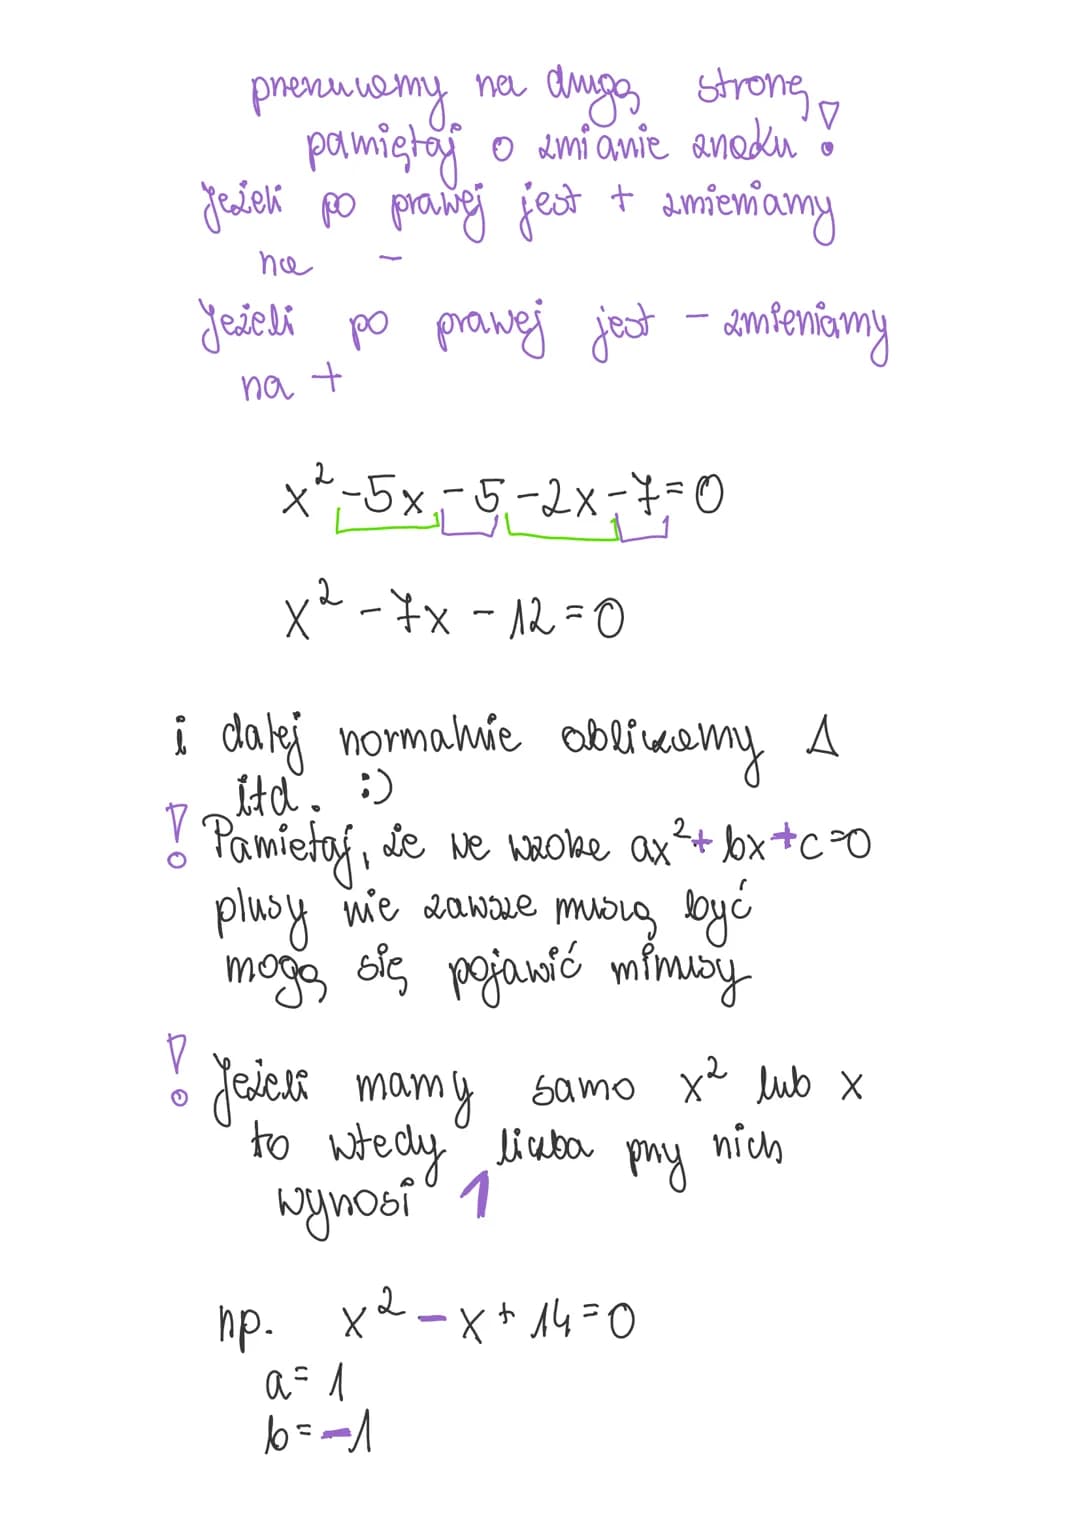 przenuwemy na drugą stronę,
pamiętaj o zmianie znaku!
Jeżeli po prawej jest + zmieniamy
na -
Jeżeli po prawej jest - zmieniamy
na +
x²-5x-5-2x-7=0
x²-7x-12=0
i dalej normalnie obliczamy Δ
itd. :)
! Pamiętaj, że we wzorze ax²+bx+c=0
plusy nie zawsze muszą być
mogą się pojawić minusy
! Jeżeli mamy samo x² lub x
to wtedy liczba przy nich
wynosi 1
np. x²-x+14=0
a=1
b=-1